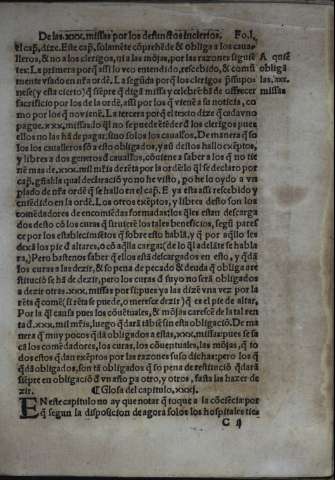 De las.xxx.missas por los defunctos en clerios. Fo.l.
el cap̃, dize. Este cap̃. solamẽte cõprehẽde & obliga a los caua-
lleros, & no a los clerigos, ni a las mõjas, por las razones siguiẽ-
A quiẽ obligã las.xxx. missas
tes: La primera porq̃ assi lo veo entendido, rescebido, & comũ
mente vsado en nr̃a ordẽ. La següda porq̃ los clerigos p̃supo-
nese (y esta cierto) q̃ siẽpre q̃ digã missa y celebrẽ hã de offrecer
sacrificio por los de la ordẽ, assi por los q̃ vienẽ a su noticia, co
mo por los q̃ no vienẽ. La tercera porq̃ el texto dize q̃ cada vno
pague.xxx.missas, lo q̃l no se puede ẽtẽder d̃ los clerigos pues
ellos no las hã de pagar: sino solos los caualleros. De manera q̃ so
los los caualleros sõ a esto obligados, y aũ destos hallo exẽptos,
y libres a dos generos d̃ caualleros, cõuiene a saber a los q̃ no tie
nẽ mas de.xxx.mil mr̃s de rẽta por la ordẽ: lo q̃l se declaro por
cap̃. gñal: la qual declaraciõ yo no he visto, po he lo oydo a va
piado de nr̃a ordẽ q̃ se hallo en el cap̃. E ya esta assi rescebido y
entẽdido en la ordẽ. Los otros exẽptos, y libres desto son los
comẽdadores de encomiẽdas formadas: los q̃les estan descarga
dos desto cõ los curas q̃ siruierẽ los tales beneficios, segũ pares
ce por los establecimiẽtos q̃ sobre esto hablã, y q̃ por aq̃llo les
dexã los piẽ d̃ altares, o cõ aq̃lla carga: (de lo q̃l adelãte se habla
ra,) Pero bastenos saber q̃ ellos estã descargados en esto, y q̃dã
los curas a las dezir, & so pena de pecado & deuda q̃ obliga a re
stituciõ se hã de dezir, pero los curas d̃ suyo no serã obligados
a dezir otras.xxx.missas por si: pues ya las dizẽ vna vez: por la
rẽta q̃ comẽ (si rẽta se puede, o meresce dezir) q̃ es el pie de altar,
Por la q̃l causa pues los cõuẽtuales, & mõjas carescẽ de la tal ren
ta d̃.xxx.mil mr̃s, luego q̃ darã tãbiẽ sin esta obligaciõ. De ma
nera q̃ muy pocos q̃dã obligados a estas,xxx,missas: pues se sa
cã los comẽdadores, los curas, los cõuentuales, las mõjas, q̃ to
dos estos q̃dan exẽptos por las razones suso dichas: pero los q̃
q̃dã obligados, son tã obligados q̃ so pena de restituciõ q̃darã
siẽpre en obligaciõ d̃ vn año pa otro, y otros, fasta las hazer de
zir. ¶ Glosa del capitulo, xxxj.
EN este capitulo no ay que notar q̃ toque a la cõciẽcia: por
q̃ segun la disposicion de agora solos los hospitales tiẽ
C ij